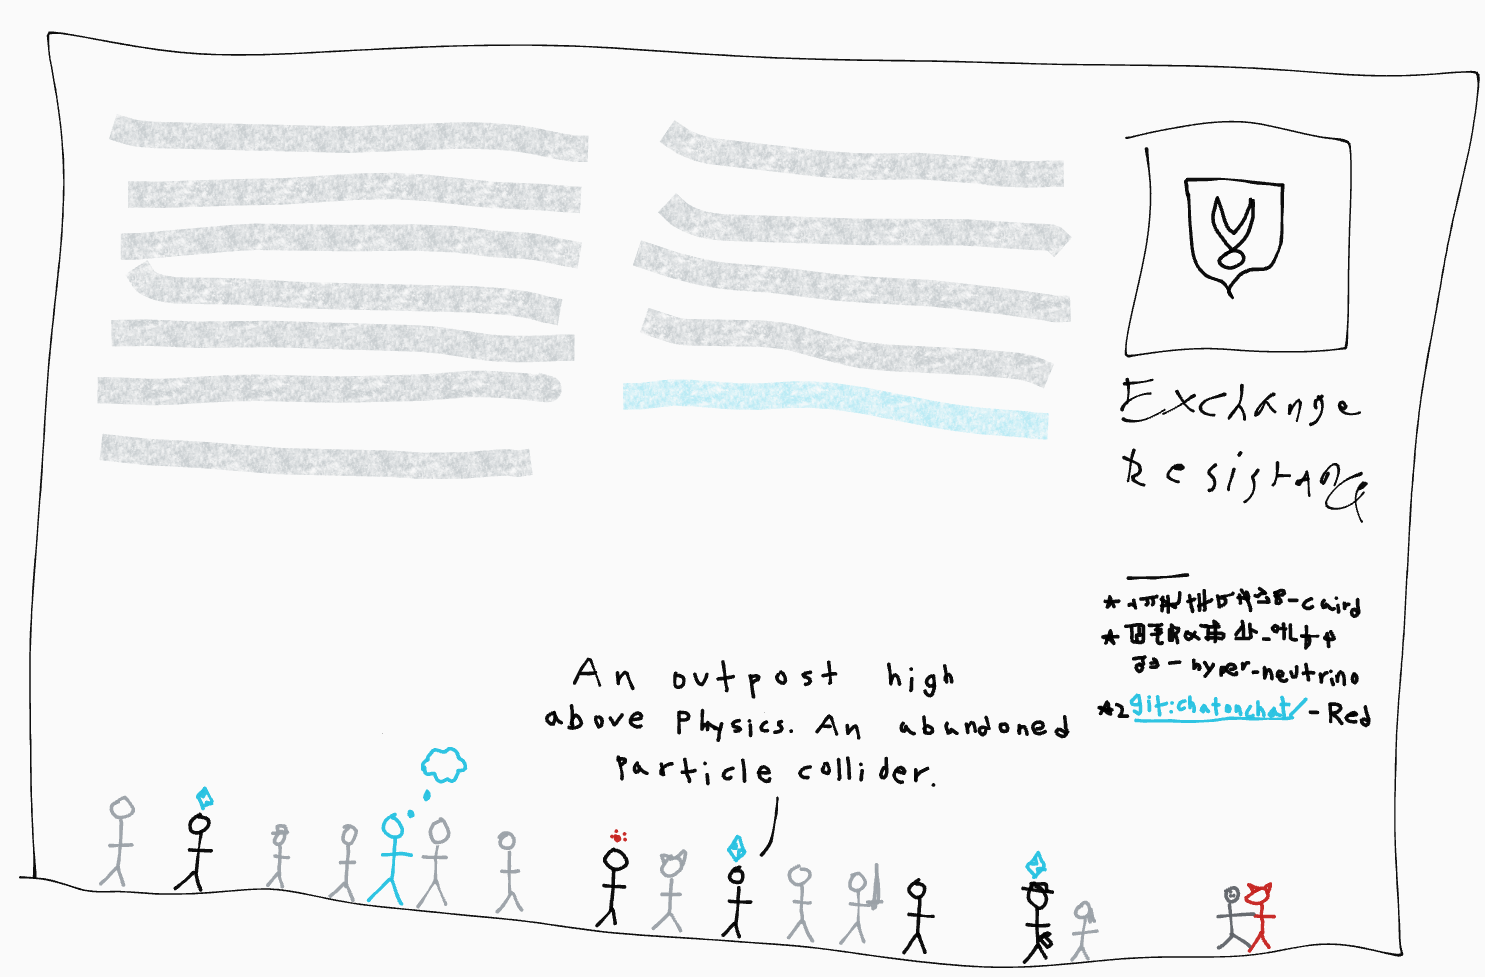 Exchange
Resistance
- caird
- hyper-neutrino
git:chatonchat/ - Red
An outpost high
above Physics. An abandoned
Particle collider.